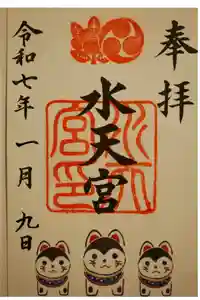 奉拝
水天宮
令和七年 一月 九日